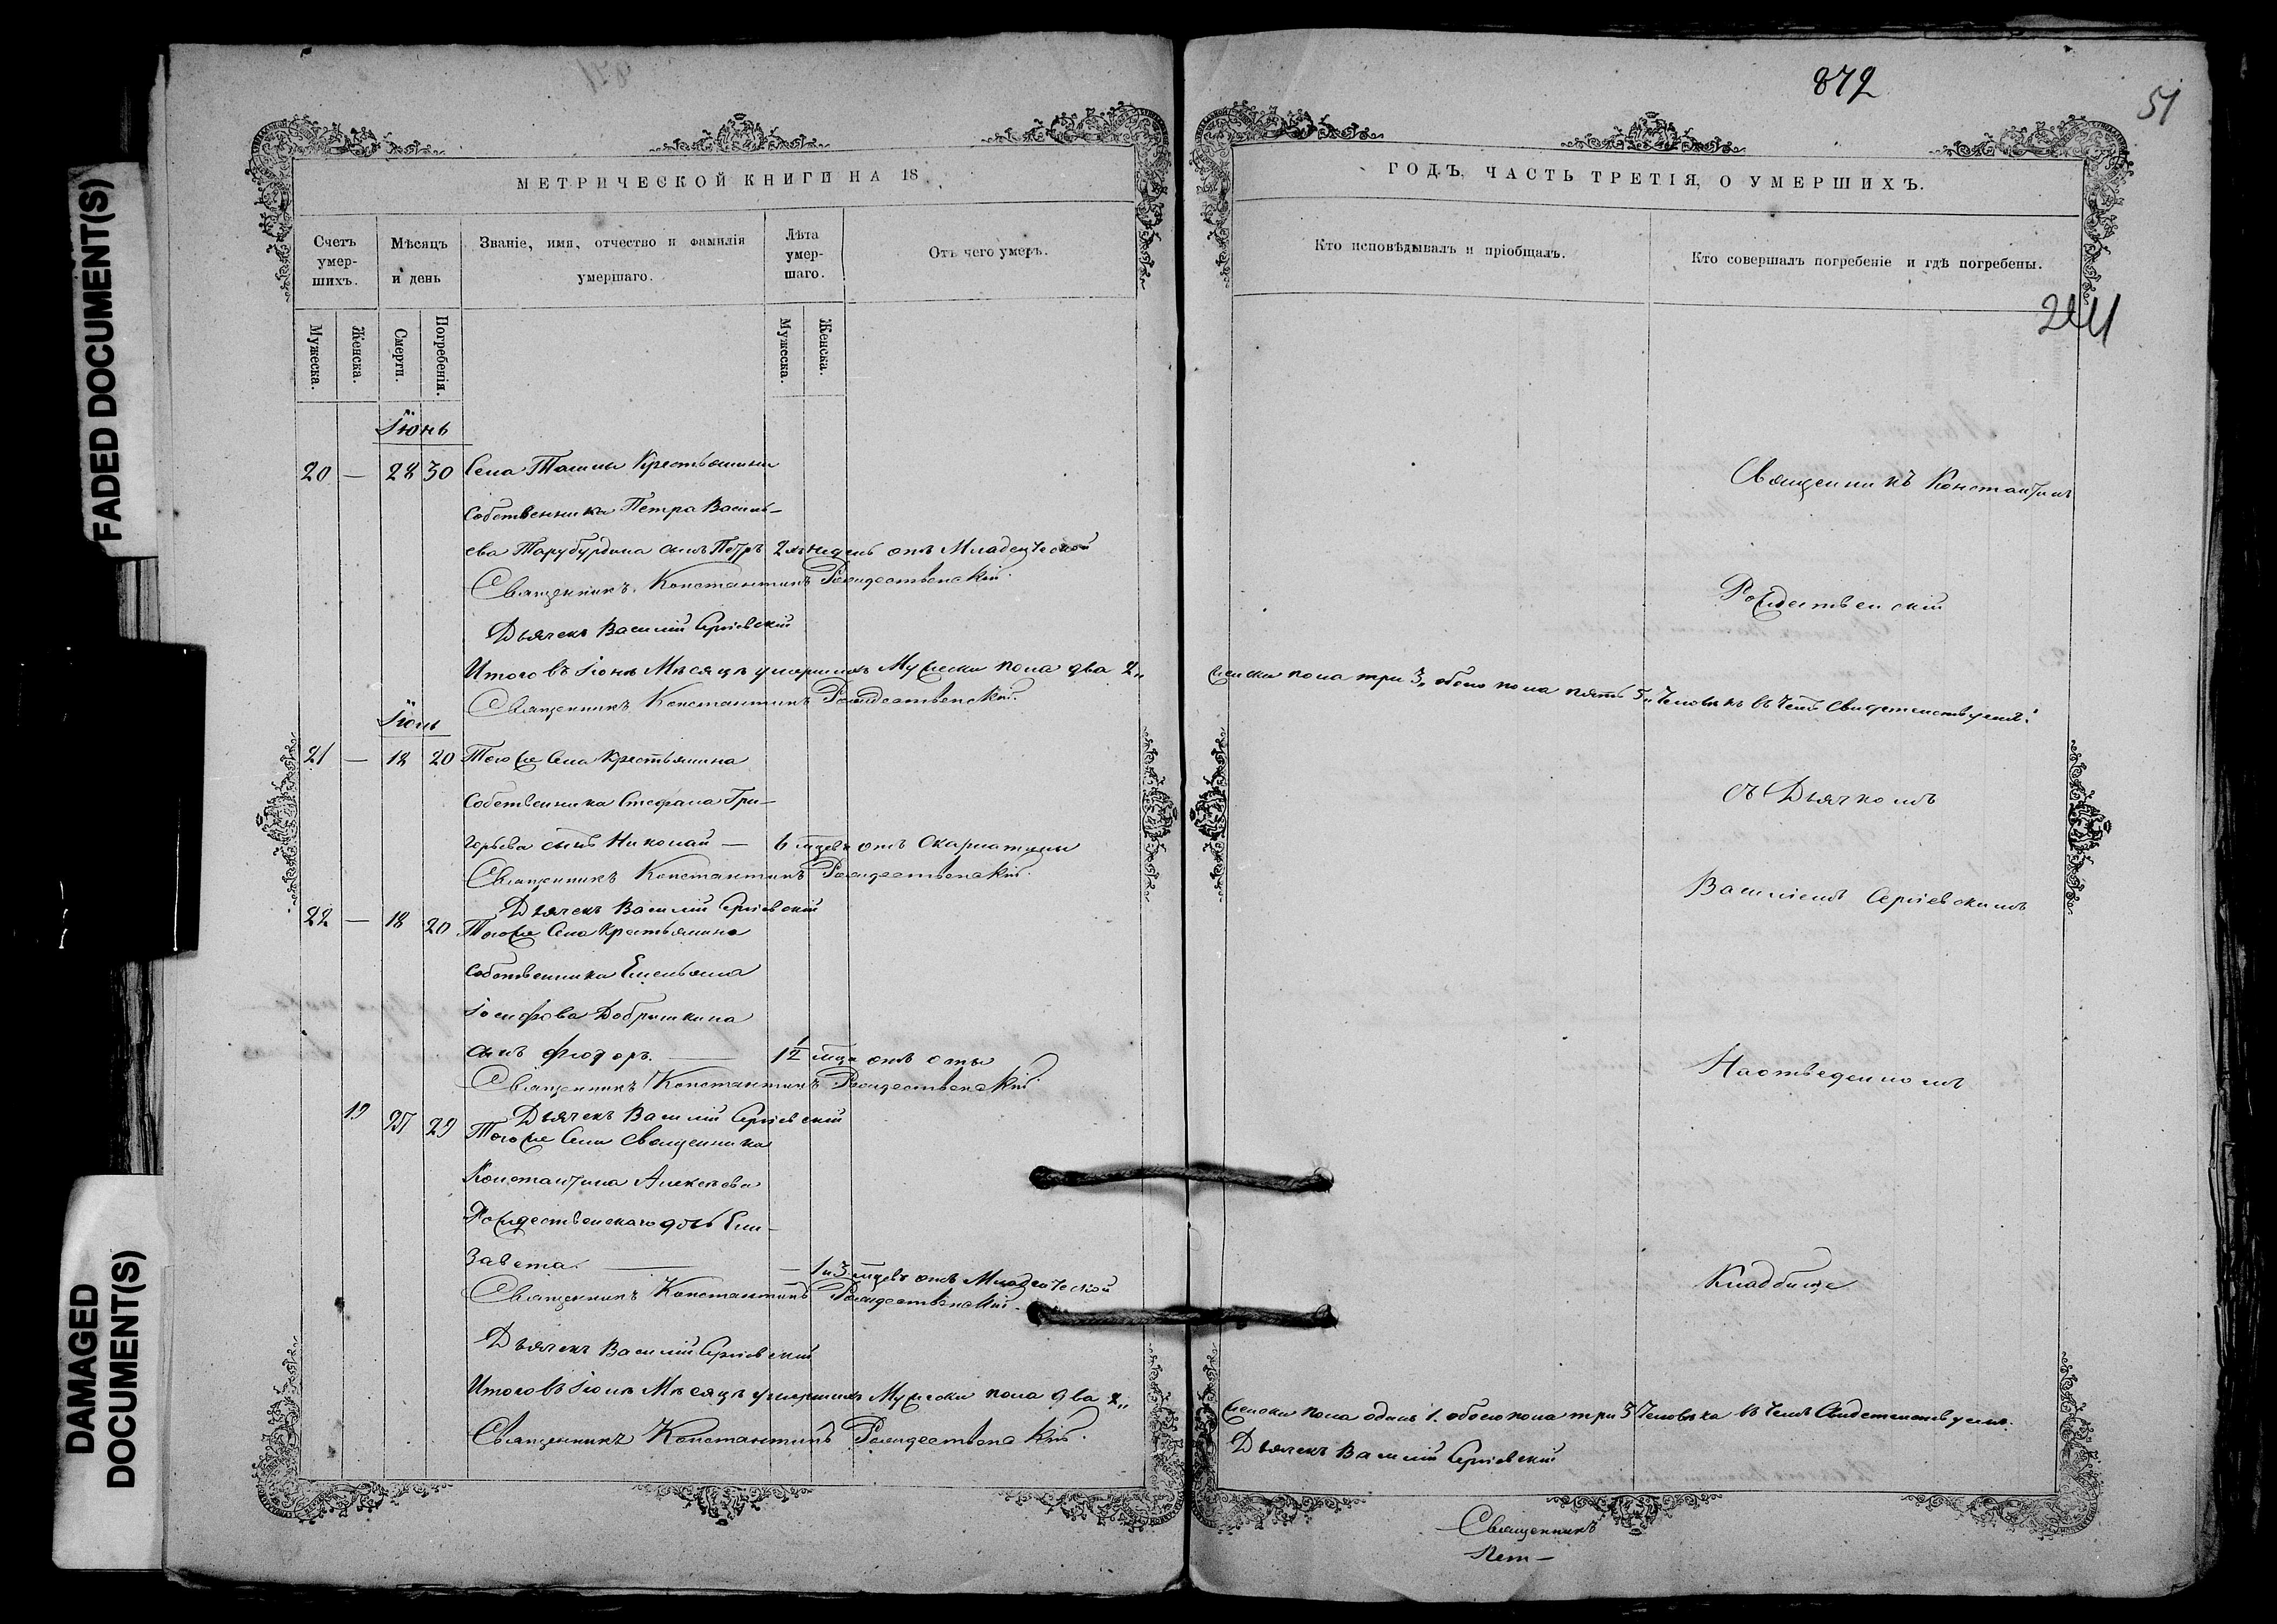 FADED DOCUMENT(S)
DAMAGED
DOCUMENT(S)
МЕТРИЧЕСКОЙ КНИГИ НА 18
Счетъ умер-шихъ.
Мѣсяцъ и день
Званіе, имя, отчество и фамилія умершаго.
Лѣта умер-шаго.
Отъ чего умеръ.
Мужеска.
Женска.
Смерти.
Погребенія.
Мужеска.
Женска.
Іюнь
20 — 28 30 Села Крестьянина
Собственника Петра Василь-
ева сынъ Петръ 2хъ недель отъ Младенческой
Священникъ Константинъ Рождественскій.
Дьячекъ Василій Сергіевскій
Итого въ Іюнѣ Мѣсяцѣ умершихъ Мужеска пола два 2„
Священникъ Константинъ Рождественскій.
21 — 18 20 Того же Села Крестьянина
Собственника Стефана Гри-
горьева сынъ Николай — 6 мцевъ отъ Скарлатины
Священникъ Константинъ Рождественскій.
Дьячекъ Василій Сергіевскій
22 — 18 20 Того же Села Крестьянина
Собственника Емельяна
Іосифова
сынъ Фіодоръ. — 1½ мца отъ оспы
Священникъ Константинъ Рождественскій.
Дьячекъ Василій Сергіевскій
19 27 29 Того же Села Священника
Константина Алексѣева
Рождественскаго дочь Ели-
завета. — 1 и 3 мцевъ отъ Младенческой
Священникъ Константинъ Рождественскій.
Дьячекъ Василій Сергіевскій
Мѣсяцѣ умершихъ Мужеска пола два 2„
Священникъ Константинъ Рождественскій.
872
51
ГОДЪ, ЧАСТЬ ТРЕТІЯ, О УМЕРШИХЪ.
Кто исповѣдывалъ и пріобщалъ.
Кто совершалъ погребеніе и гдѣ погребены.
241
Священникъ Константинъ
Рождественскій
женска пола три 3„ обоего пола пять 5„ Человѣкъ въ чемъ Свидетельствуемъ:
съ Дьячкомъ
Василіемъ Сергіевскимъ
На отведенномъ
Кладбище
женска пола одинъ 1. обоего пола три 3 Человѣка въ чемъ Свидетельствуемъ.
Дьячекъ Василій Сергіевскій
Священникъ